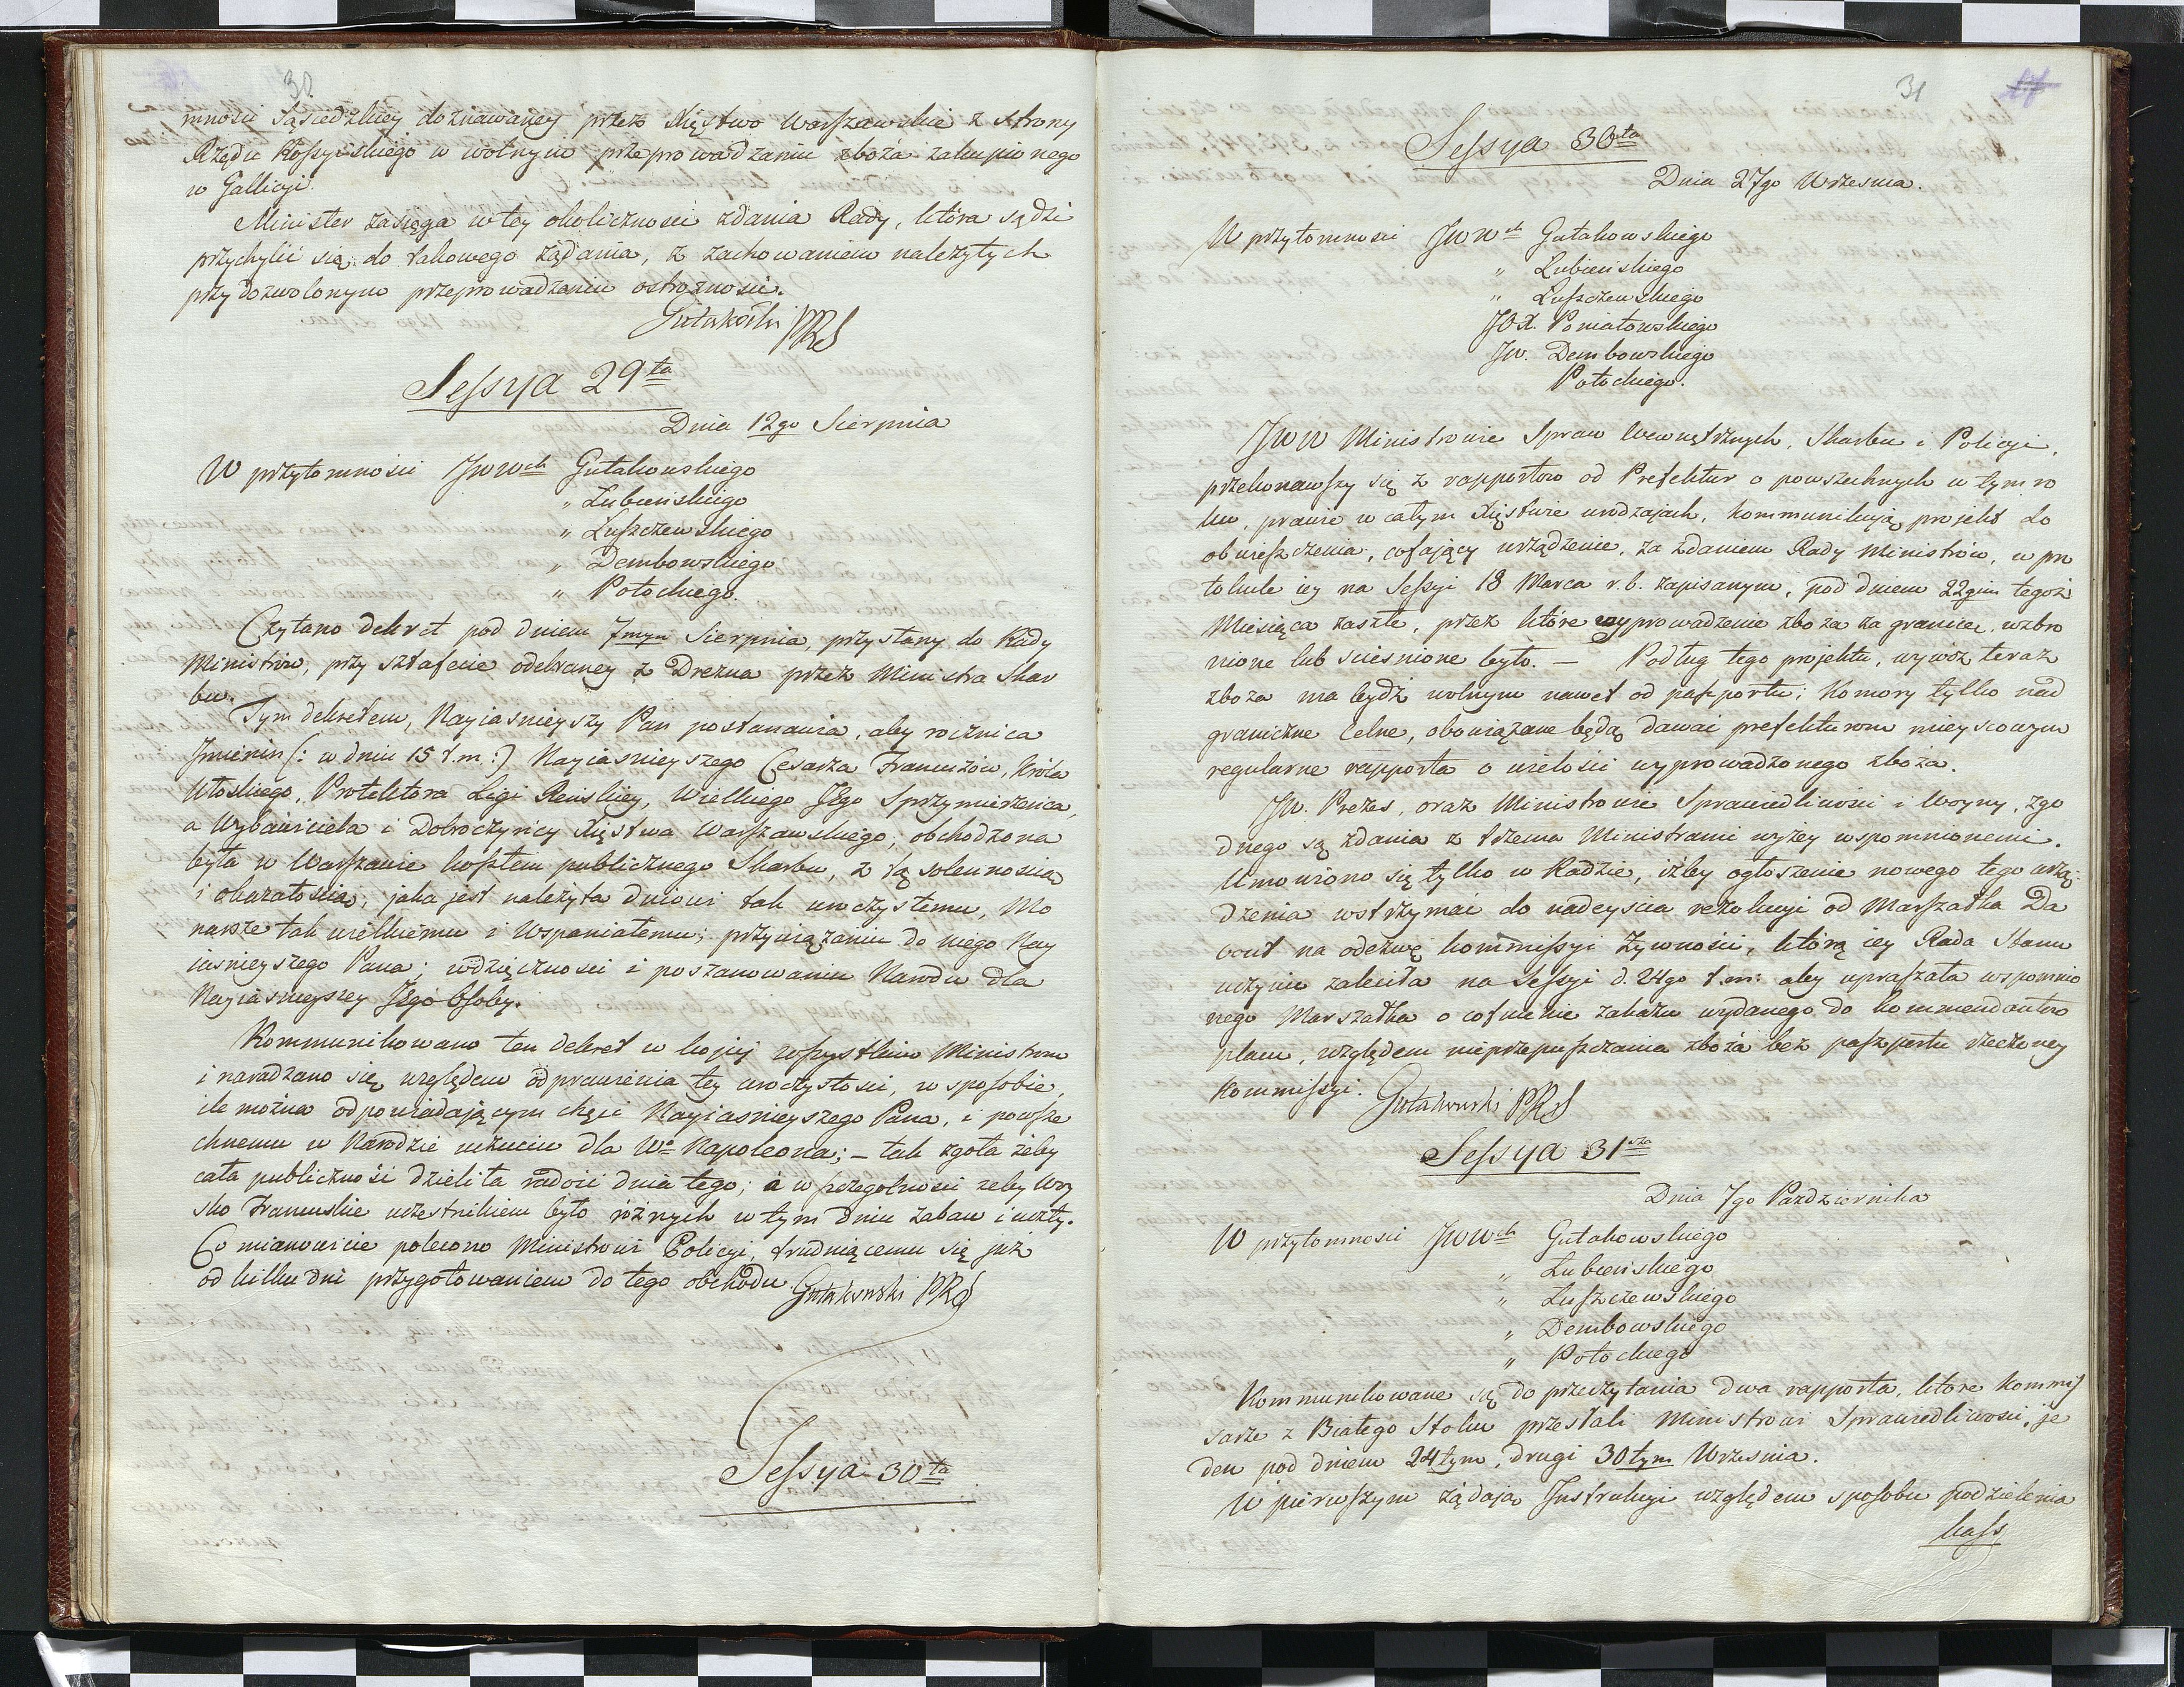 30
mności Sąsiedzkiey doznawaney przez Xięstwo Warszawskie z strony
Rządu Rossyiskiego w wolnym przeprowadzaniu zboża zakupionego
w Gallicyi.
Minister zasięga w tey okoliczności zdania Rady, która sądzi
przychylić się do takowego żądania, z zachowaniem należytych
przy dozwolonym przeprowadzaniu ostrożności.
Gutakowski PRS
Sessya 29ta
Dnia 12go Sierpnia
W przytomności JWWch Gutakowskiego
" Łubieńskiego
" Łuszczewskiego
" Dembowskiego
" Potockiego.
Czytano dekret pod dniem 7mym Sierpnia, przysłany do Rady
Ministrów, przy sztafecie odebraney z Drezna przez Ministra Skar
bu.
Tym dekretem, Nayiasnieyszy Pan postanawia, aby rocznica
Jmienin (: w dniu 15 t.m :) Nayiasnieyszego Cesarza Francuzów, Króla
Włoskiego, Protektora Ligi Reńskiey, Wielkiego Jego Sprzymierzeńca,
a Wybawiciela i Dobroczyńcy Xięstwa Warszawskiego, obchodzona
była w Warszawie kosztem publicznego Skarbu, z tą solennością
i okazałością, jaka jest należyta dniowi tak uroczystemu, Mo
narsze tak wielkiemu i Wspaniałemu; przywiązaniu do niego Nay
iasnieyszego Pana; wdzięczności i poszanowaniu Narodu dla
Nayiasnieyszey Jego Osoby.
Kommunikowano ten dekret w kopij wszystkim Ministrom
i naradzano się względem odprawienia tey uroczystości, w sposobie,
ile można odpowiadającym chęci Nayiasnieyszego Pana, i powsze
chnemu w Narodzie uczuciu dla Wo Napoleona; – tak zgoła żeby
cała publiczność dzieliła radość dnia tego; a w szczegolności zeby Woy
sko Francuskie uczestnikiem było różnych w tym dniu zabaw i uczty.
Co mianowicie polecono Ministrowi Policyi, trudniącemu się już
od kilku dni przygotowaniem do tego obchodu Gutakowski PRS
Sessya 30ta
31
Sessya 30ta
Dnia 27go Wrzesnia.
W przytomności JWWch Gutakowskiego
" Łubieńskiego
" Łuszczewskiego
JOX. Poniatowskiego
JW. Dembowskiego
Potockiego.
JWW Ministrowie Spraw Wewnętrznych, Skarbu i Policyi,
przekonawszy się z rapportow od Prefektur o powszechnych w tym ro
ku, prawie w całym Xięstwie urodzajach, kommunikują projekt do
obwieszczenia, cofający urządzenie, za zdaniem Rady Ministrów, w pro
tokule iey na Sessyi 18 Marca r.b. zapisanym, pod dniem 22gim tegoż
Miesiąca zaszłe, przez które wyprowadzenie zboża za granicę, wzbro
nione lub scieśnione było. — Podług tego projektu, wywóz teraz
zboża ma bydź wolnym nawet od paszportu; Komory tylko nad
graniczne Celne, obowiązane będą dawać prefekturom mieyscowym
regularne rapporta o wielości wyprowadzonego zboża.
JW. Prezes, oraz Ministrowie Sprawiedliwości i Woyny, zgo
dnego są zdania z trzema Ministrami wyżey wspomnionemi.
Umowiono się tylko w Radzie, iżby ogłoszenie nowego tego urzą
dzenia wstrzymać do nadeyscia rezolucyi od Marszałka Da
vout na odezwę kommissyi Żywności, którą iey Rada Stanu
uczynić zaleciła na Sessyi d. 24go t.m: aby upraszała wspomnio
nego Marszałka o cofnienie zakazu wydanego do kommendantow
placu, względem nieprzepuszczania zboża bez paszportu rzeczoney
Kommissyi. Gutakowski PRS
Sessya 31sza
Dnia 7go Pazdziernika
W przytomności JWWch Gutakowskiego
" Łubieńskiego
" Łuszczewskiego
" Dembowskiego
" Potockiego
Kommunikowane są do przeczytania dwa rapporta, ktore Kommis
sarze z Białego Stoku przesłali Ministrowi Sprawiedliwości, je
den pod dniem 24tym, drugi 30tym Wrzesnia.
W pierwszym żądają Jnstrukcyi względem sposobu podzielenia
kass